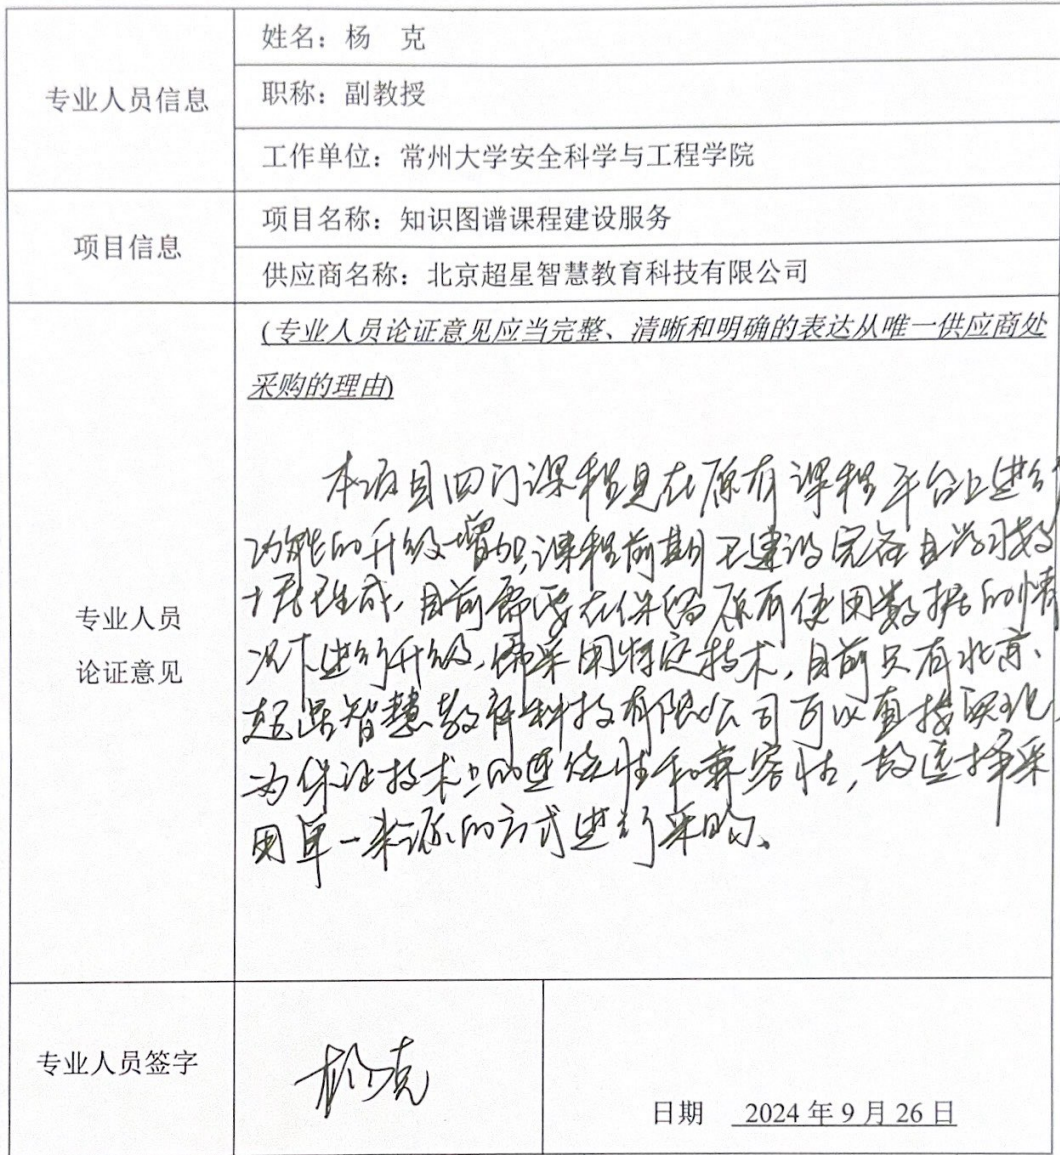 专业人员信息
姓名：杨 克
职称：副教授
工作单位：常州大学安全科学与工程学院
项目信息
项目名称：知识图谱课程建设服务
供应商名称：北京超星智慧教育科技有限公司
专业人员
论证意见
(专业人员论证意见应当完整、清晰和明确的表达从唯一供应商处
采购的理由)
本项目四门课程是在原有课程平台上进行
功能的升级增加，课程前期已建设完备且学习数
据已生成，目前需要在保留原有使用数据的情
况下进行升级，需采用特定技术，目前只有北京
超星智慧教育科技有限公司可以直接实现
为保证技术上的延续性和兼容性，故选择采
用单一来源的方式进行采购。
专业人员签字
杨克
日期 2024 年 9 月 26 日